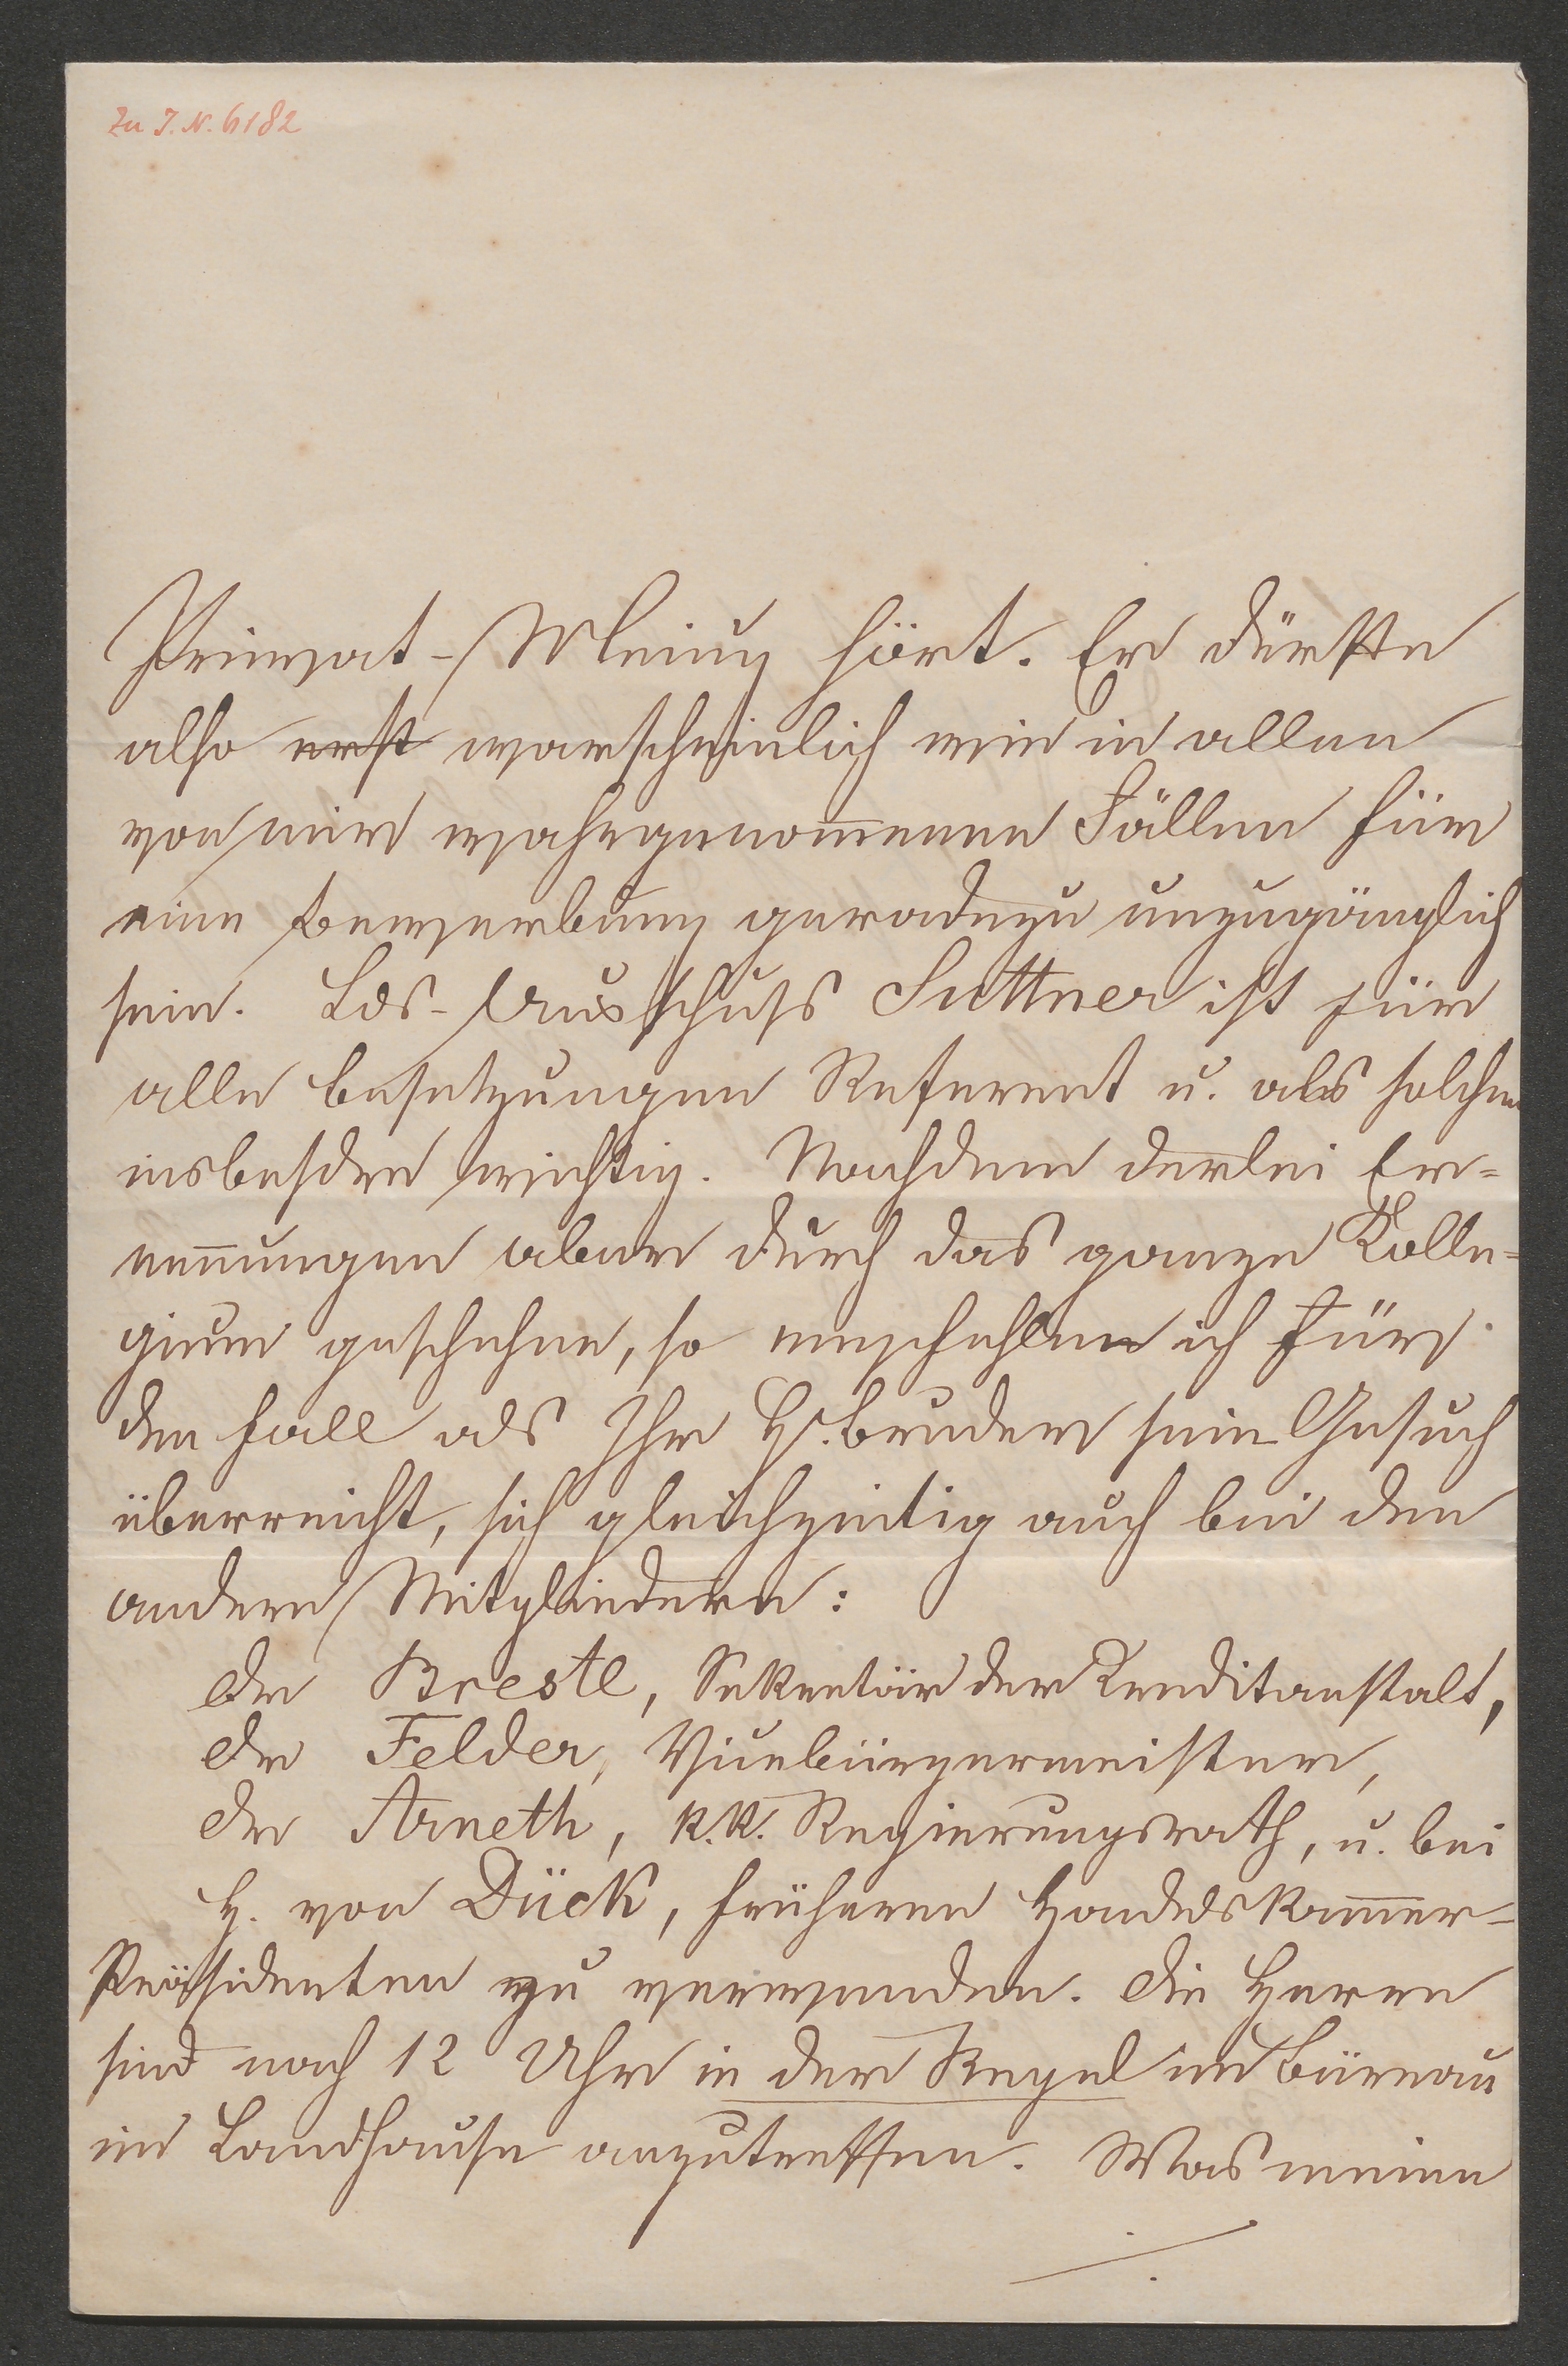 Zu I.N. 6182
Privat-Meinung hört. Er dürfte
also erst warscheinlich wie in allen
von mir wahrgenom̅enen Fällen für
eine Bewerbung geradezu unzugänglich
sein. Lds-Ausschuss Suttner ist für
alle Besetzungen Referent u. als solcher
insbesdre wichtig. Nachdem derlei Er=
nen̅ungen aber durch das ganze Kolle=
gium geschehen, so empfehle ich für
den Fall als Ihr H. Bruder sein Gesuch
überreicht, sich gleichzeitig auch bei den
andern Mitgliedern:
Dr Brestl, Sekretär der Kreditanstalt,
Dr Felder, Vicebürgermeister,
Dr Arneth, k.k. Regierungsrath, u. bei
H. von Dück, früheren Handelskam̅er-
Präsidenten zu verwenden. Die Herren
sind nach 12 Uhr in der Regel im Büreau
im Landhause anzutreffen. Was meine
./.